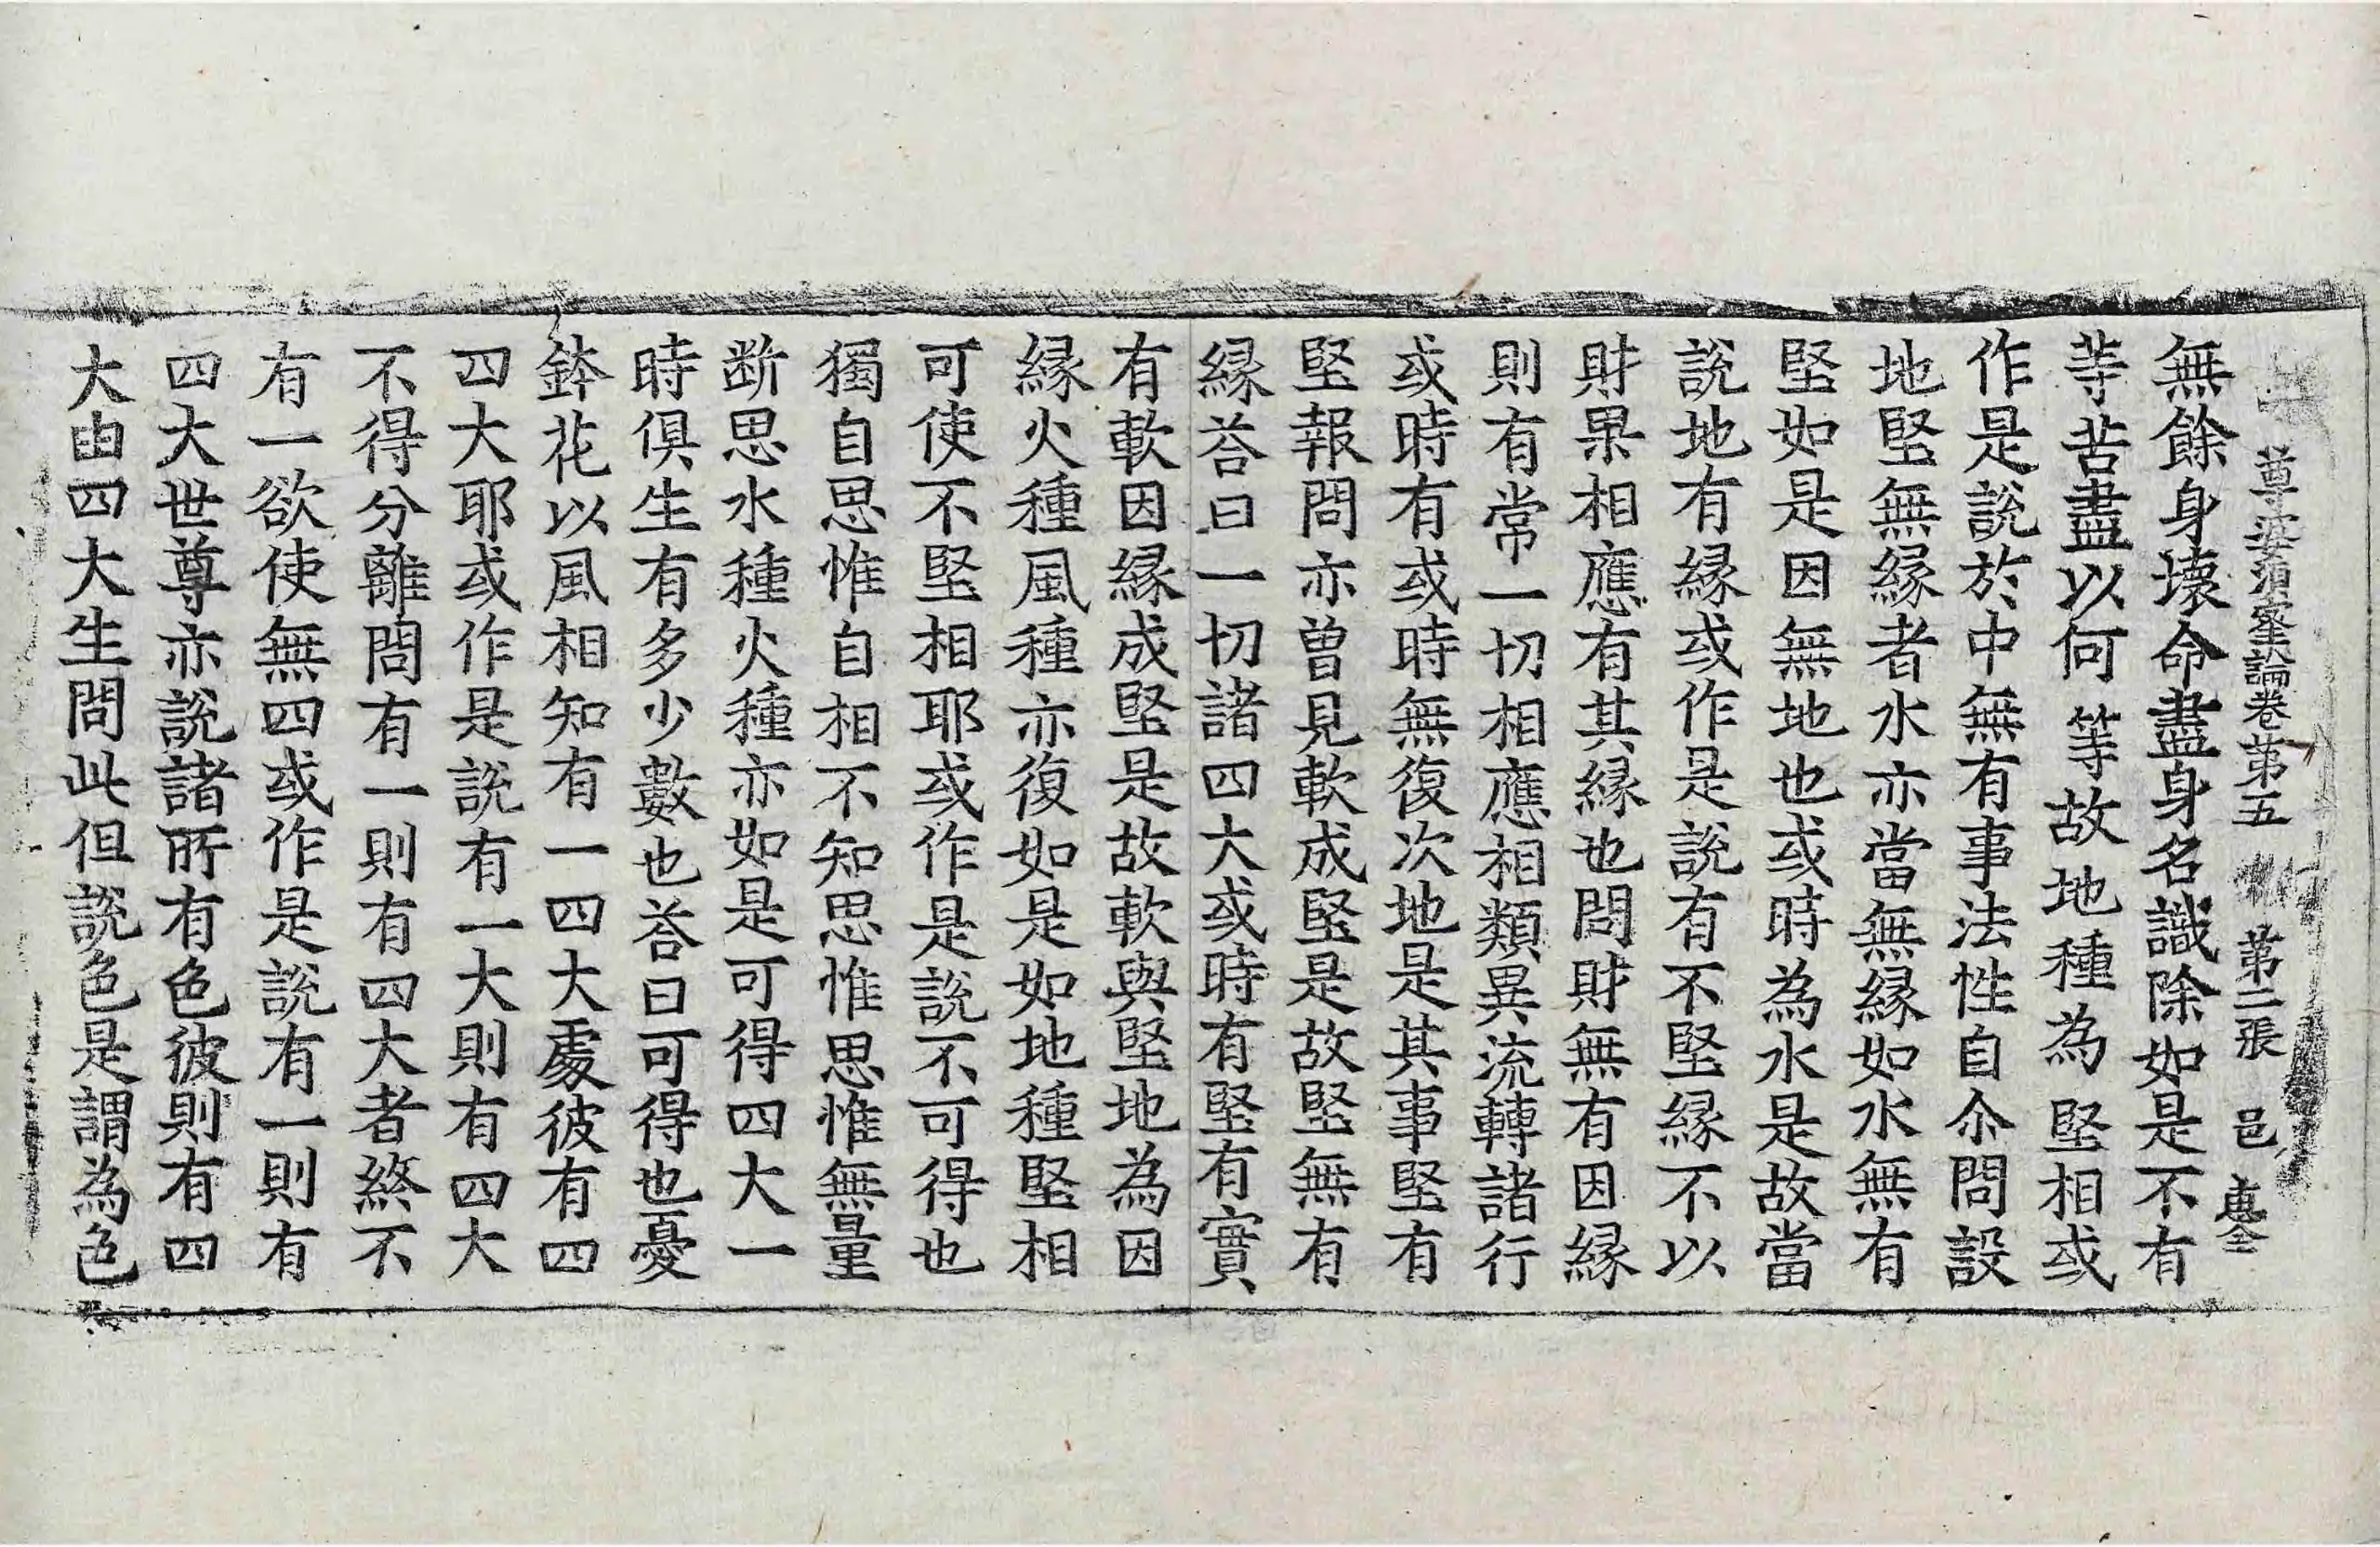 尊婆須蜜論卷第五 第二張 邑
無餘身壞命盡身名識除如是不有
等苦盡以何等故地種為堅相或
作是說於中無有事法性自尒問設
地堅無縁者水亦當無縁如水無有
堅如是因無地也或時為水是故當
說地有縁或作是說有不堅縁不以
財果相應有其縁也問財無有因縁
則有常一切相應相類異流轉諸行
或時有或時無復次地是其事堅有
堅報問亦曽見軟成堅是故堅無有
縁荅曰一切諸四大或時有堅有實
有軟因縁成堅是故軟與堅地為因
縁火種風種亦復如是如地種堅相
可使不堅相耶或作是說不可得也
獨自思惟自相不知思惟思惟無量
断思水種火種亦如是可得四大一
時俱生有多少數也荅曰可得也憂
鉢花以風相知有一四大處彼有四
四大耶或作是說有一大則有四大
不得分離問有一則有四大者終不
有一欲使無四或作是說有一則有
四大世尊亦說諸所有色彼則有四
大由四大生問此但說色是謂為色